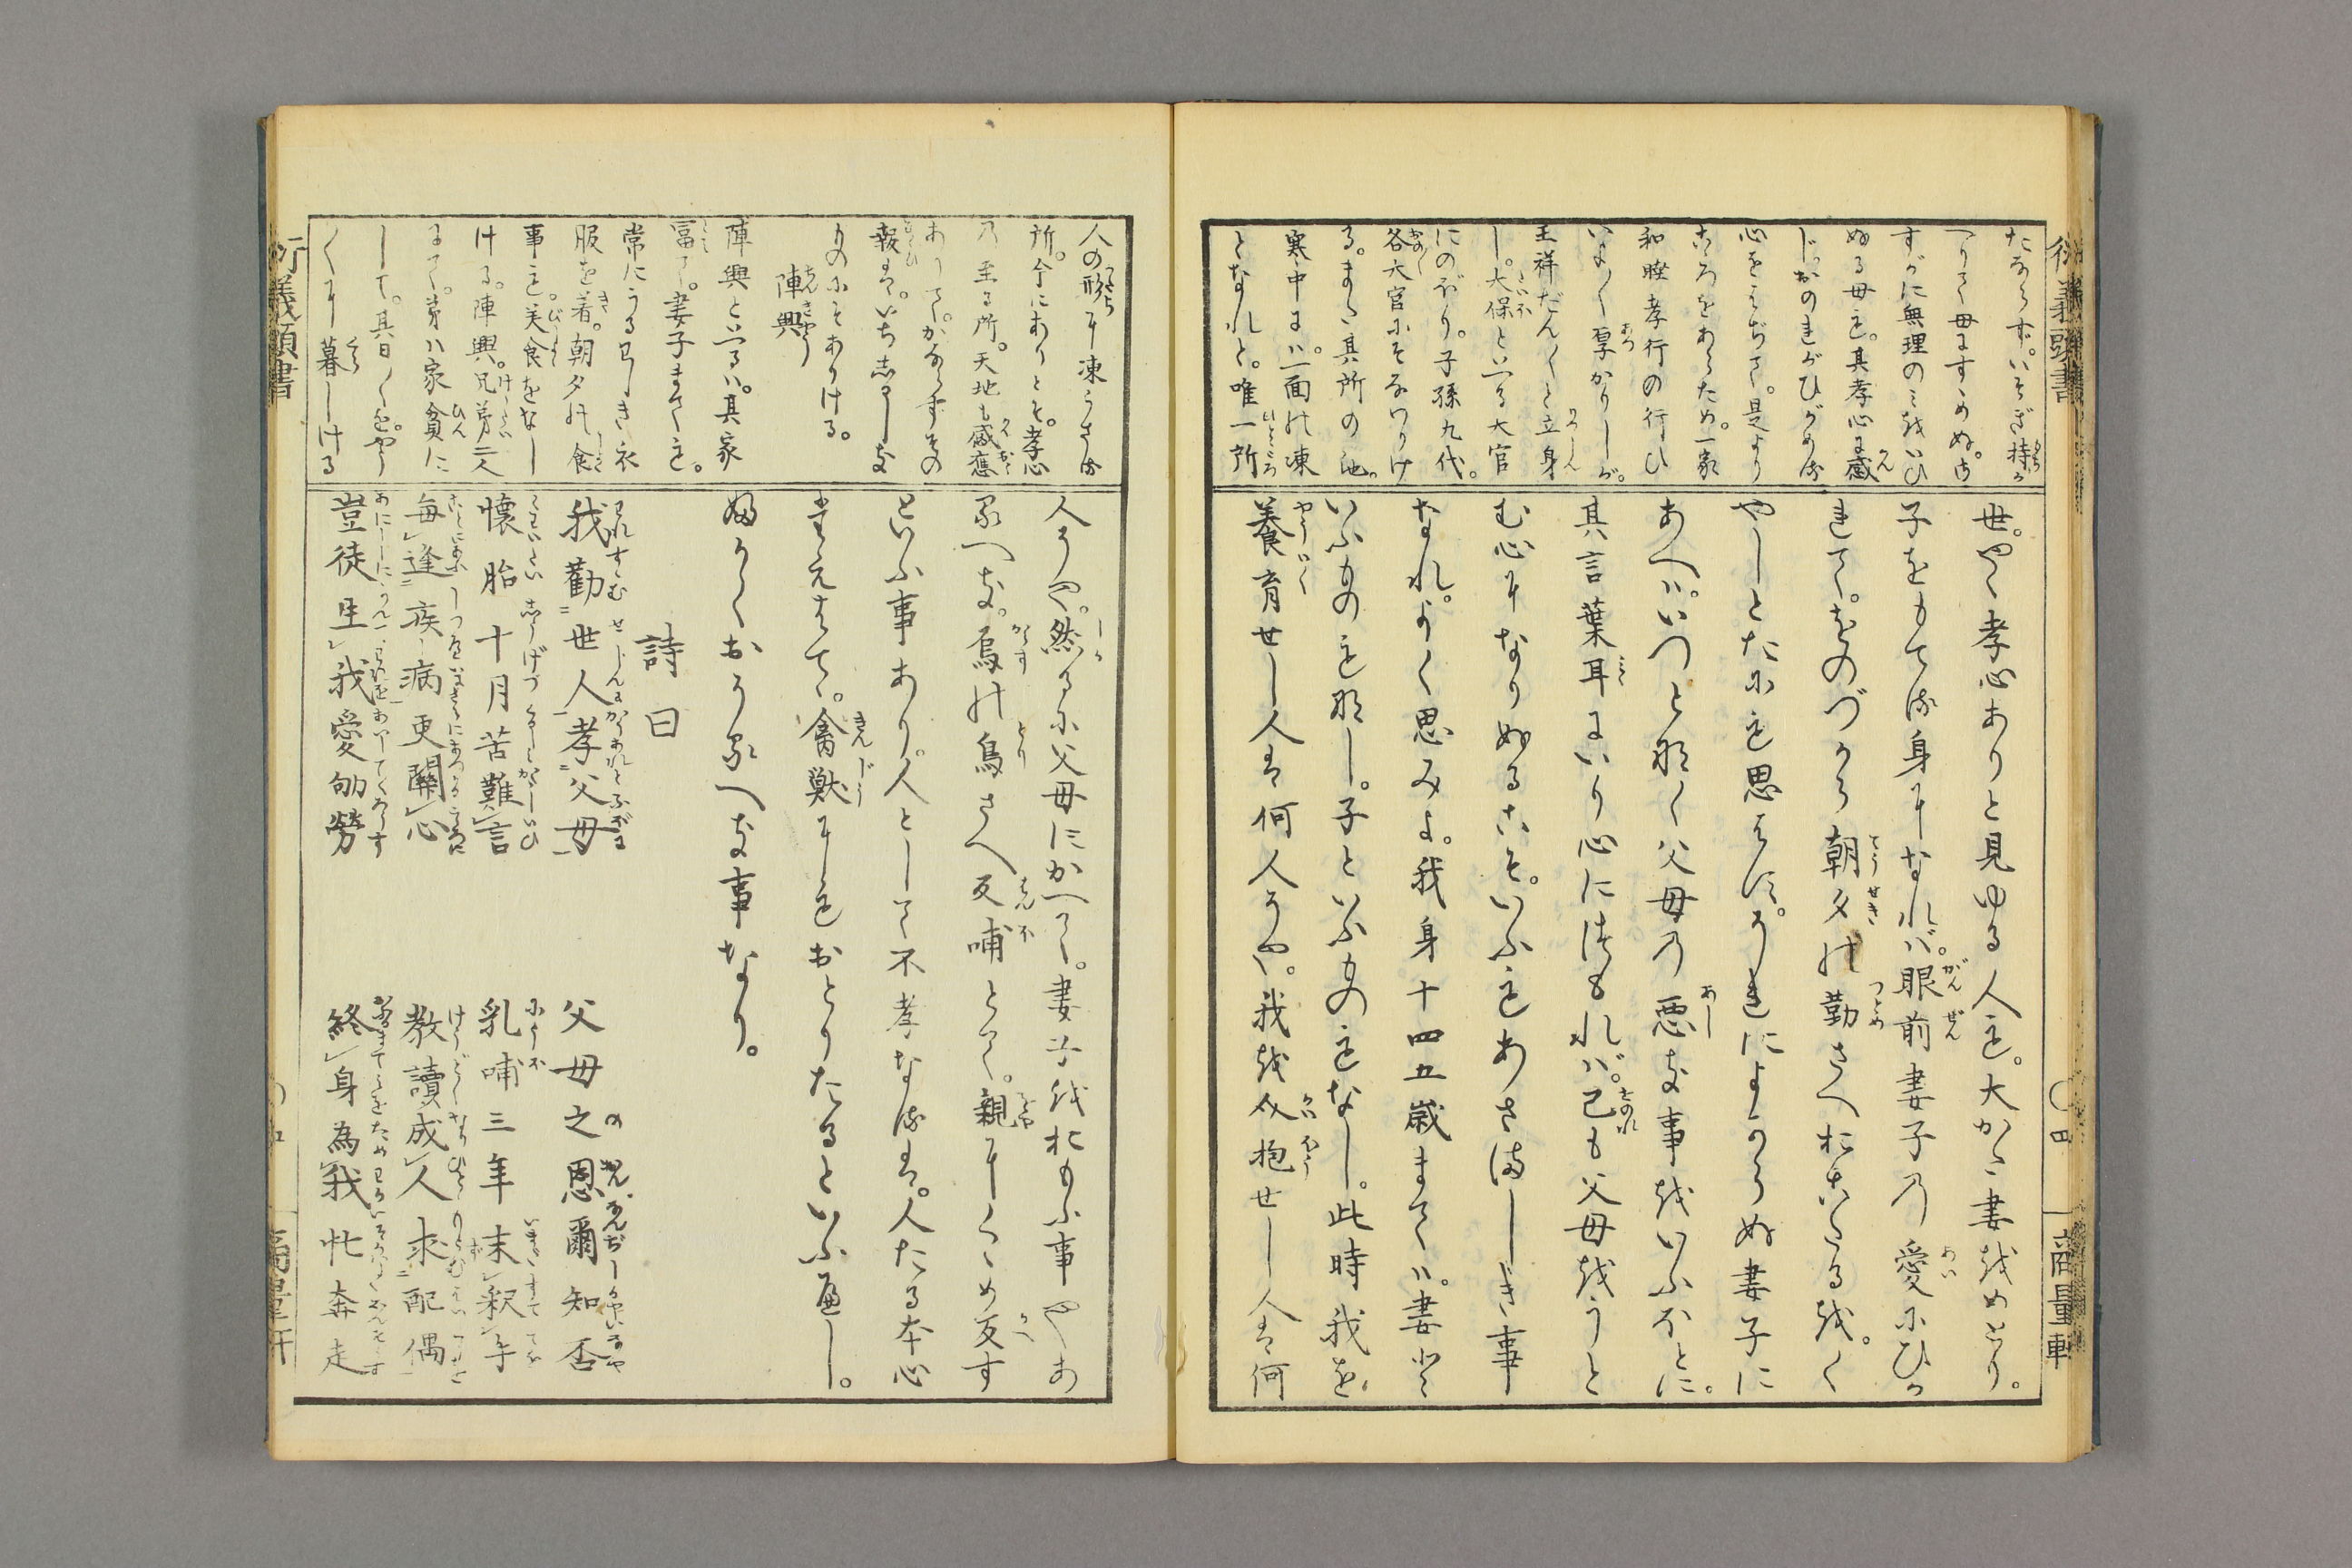 衍義頭書
たならず。いそぎ持か
へりて母にすゝめぬ。さ
すがに無理のミをいひ
ぬる母も。其孝心に感
じつおのれがひがめる
心をはぢて。是より
こゝろをあらため。一家
和睦孝行の行ひ
いよ〱厚かりしが。
王祥だん〱と立身
し。大保といへる大官
にのぼり。子孫九代。
各大官にそなハりけ
る。また其所の池。
寒中にハ。一面に凍
となれど。唯一所
世。やゝ孝心ありと見ゆる人も。大かた妻をめとり。
子をもてる身となれバ。眼前妻子の愛にひか
れて。をのづから朝夕の勤さへおこたるを。く
やしとだにも思はず。うれによからぬ妻子に
あへバ。いつとなく父母の悪き事をいふほどに。
其言葉耳にいり心につもれバ。己も父母をうと
む心になりぬるこそ。いふもあさましき事
なれ。よく思みよ。我身十四五歳まてハ。妻とて
いふものもなし。子といふものもなし。此時我を
養育せし人は何人そや。我を介抱せし人は何
四
商量軒
人の形に凍らざる
所。今にありとぞ。孝心
の至る所。天地も感應
ありて。かならずその
報は。いちじるしき
ものにそありける。
陳興
陳興といへるハ。其家
冨て。妻子まても。
常にうるハしき衣
服を着。朝夕の食
事も。美食をなし
ける。陳興。兄弟三人
にて。弟ハ家貧に
して。其日〱を。やう
〱に暮しける
人そや。然るに父母にかへて。妻子をおもふ事やあ
るべき。烏の鳥さへ反哺とて。親にくゝめ反す
といふ事あり。人として不孝なるは。人たる本心
きえはてゝ。禽獣にもおとりたるといふべし。
ふかくおそるべき事なり。
詩曰
我勸世人孝父母 父母之恩爾知否
懐胎十月苦難言 乳哺三年未釈手
毎逢疾病更關心 教讀成人求配偶
豈徒生我愛劬勞 終身為我忙奔走
衍義頭書
商量軒